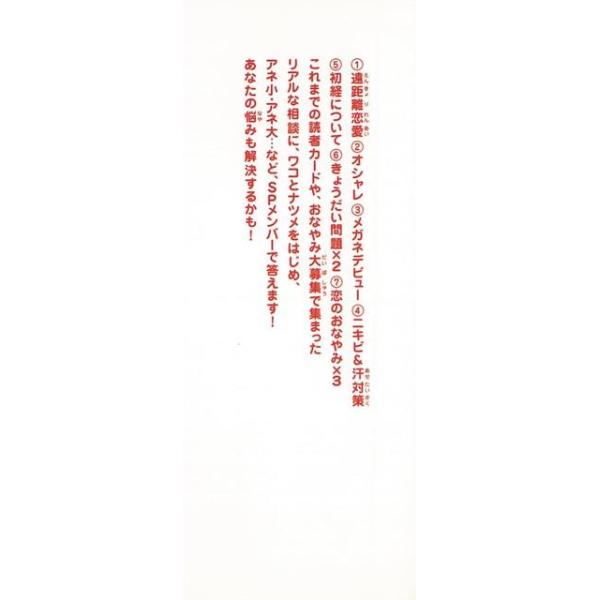 ①遠距離恋愛 ②オシャレ ③メガネデビュー ④ニキビ&汗対策
⑤初経について ⑥きょうだい問題×2 ⑦恋のおなやみ×3
これまでの読者カードや、おなやみ大募集で集まった
リアルな相談に、ワコとナツメをはじめ、
アネ小・アネ大…など、SPメンバーで答えます！
あなたの悩みも解決するかも！